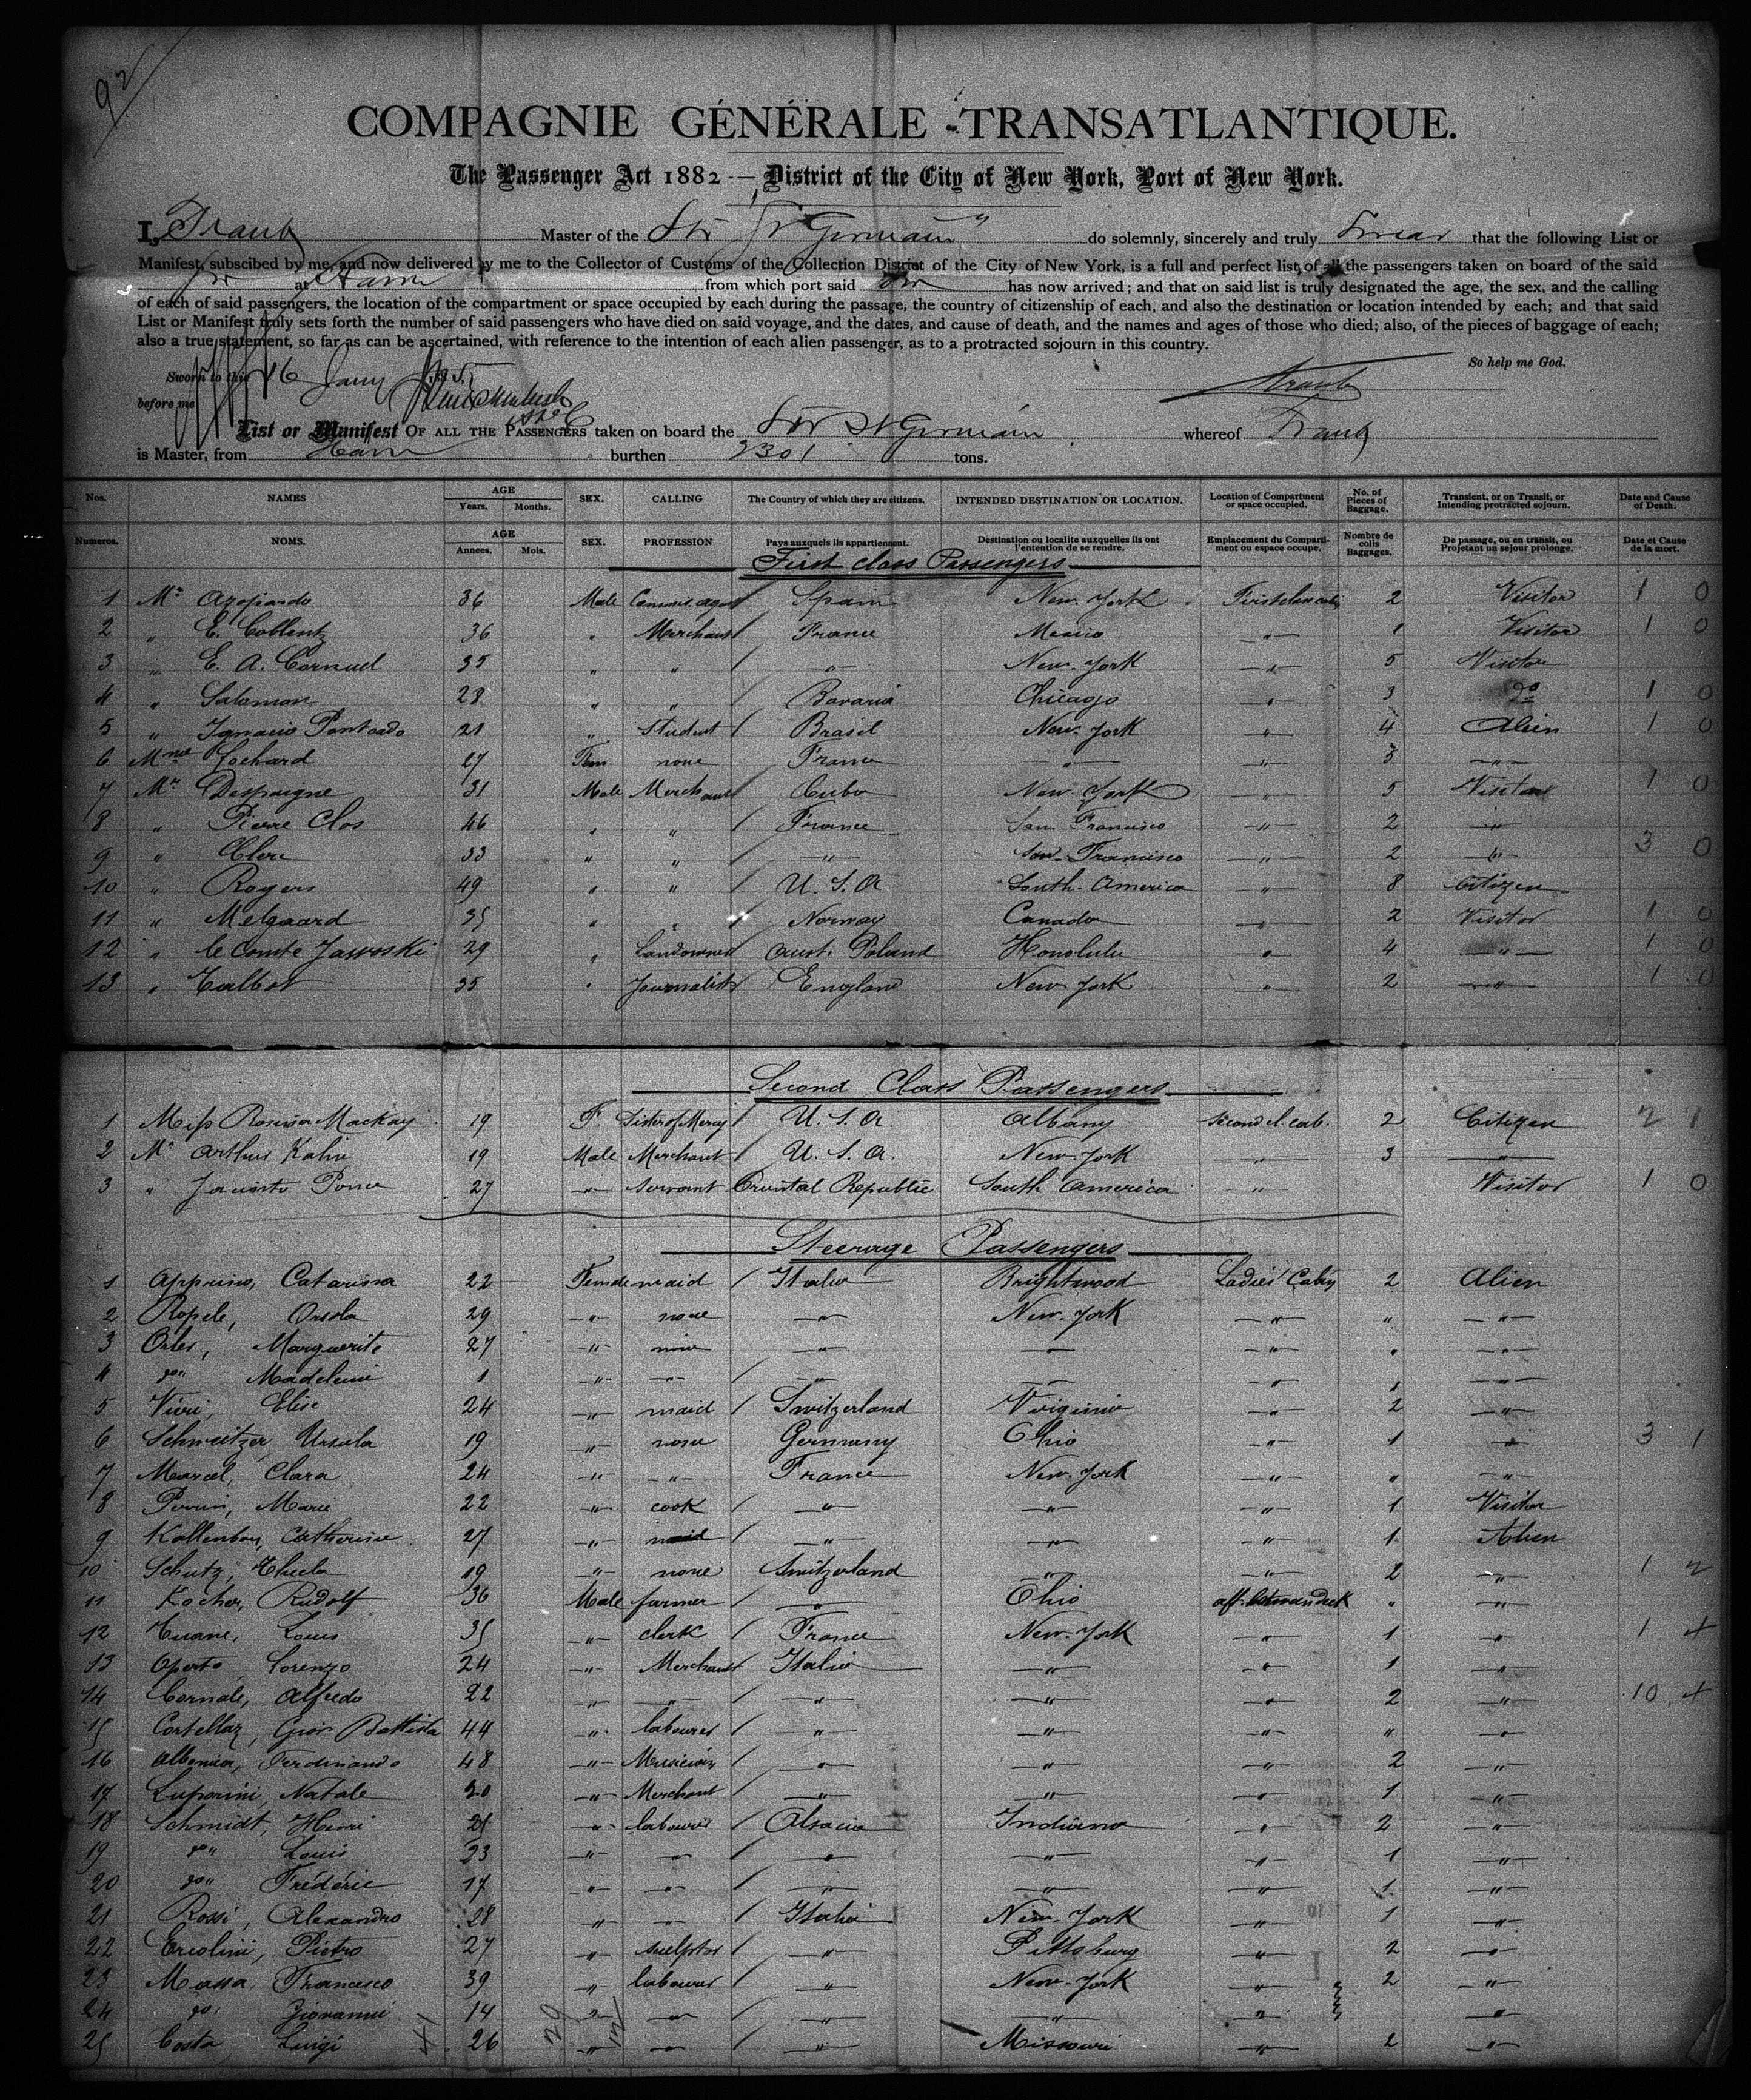 92
COMPAGNIE GÉNÉRALE TRANSATLANTIQUE.
The Passenger Act 1882 — District of the City of New York, Port of New York.
I, Traub Master of the Str "St Germain" do solemnly, sincerely and truly Swear that the following List or
Manifest, subscibed by me, and now delivered by me to the Collector of Customs of the Collection District of the City of New York, is a full and perfect list of all the passengers taken on board of the said
Str at Havre from which port said Str has now arrived; and that on said list is truly designated the age, the sex, and the calling
of each of said passengers, the location of the compartment or space occupied by each during the passage, the country of citizenship of each, and also the destination or location intended by each; and that said
List or Manifest truly sets forth the number of said passengers who have died on said voyage, and the dates, and cause of death, and the names and ages of those who died; also, of the pieces of baggage of each;
also a true statement, so far as can be ascertained, with reference to the intention of each alien passenger, as to a protracted sojourn in this country.
So help me God.
Sworn to this 16 Jany
before me
Traub
List or Manifest OF ALL THE PASSENGERS taken on board the Str St Germain whereof Traub
is Master, from Havre burthen 2301 tons.
Nos. NAMES AGE Years. Months. SEX. CALLING The Country of which they are citizens. INTENDED DESTINATION OR LOCATION. Location of Compartment or space occupied. No. of Pieces of Baggage. Transient, or on Transit, or Intending protracted sojourn. Date and Cause of Death.
Numeros. NOMS. AGE Annees. Mois. SEX. PROFESSION Pays auxquels ils appartiennent. Destination ou localite auxquelles ils ont l'entention de se rendre. Emplacement du Compartiment ou espace occupe. Nombre de colis Baggages. De passage, ou en transit, ou Projetant un sejour prolonge. Date et Cause de la mort.
First class Passengers
1 Mr Azopardo 36 Male Spain New York First class cab. 2 Visitor 1 0
2 " E. Coblentz 36 " Merchant / France Mexico " 1 Visitor 1 0
3 " E. A. Cornuel 35 " " / " New-York " 5 Visitor
4 " Salomon 28 " " / Bavaria Chicago " 3 do 1 0
5 " Ignacio Penteado 21 " Student / Brasil New-York " 4 Alien 1 0
6 Mme Cochard 27 Fem. none France " " 3 "
7 Mr Despaigne 31 Male Merchant Cuba New-York " 5 Visitor 1 0
8 " Pierre Clos 46 " " / France San Francisco " 2 "
9 " Clerc 33 " " / " San-Francisco " 2 " 3 0
10 " Rogers 49 " " / U.S.A South-America " 8 Citizen
11 " Melgaard 35 " " / Norway Canada " 2 Visitor 1 0
12 " le Comte Jawoski 29 " Landowner Aust. Poland Honolulu " 4 " 1 0
13 " Talbot 35 " Journalist / England New York " 2 " 1 0
Second Class Passengers
1 Miss Rosina Mackay 19 F. Sister of Mercy / U.S.A. Albany second cl. cab. 2 Citizen 2 1
2 Mr Arthur Kahn 19 Male Merchant / U.S.A. New-York " 3 "
3 " Jacinto Ponce 27 " servant Oriental Republic South America " Visitor 1 0
Steerage Passengers
1 Catarina 22 Female maid / Italia Brightwood Ladies' Cabin 2 Alien
2 Ropele, Orsola 29 " none " New-York " " "
3 Orles, Marguerite 27 " none " " " " "
4 do Madeleine 1 " " / " " " 1 "
5 Elise 24 " maid / Switzerland Virginia " 2 "
6 Schweitzer Ursula 19 " none Germany Ohio " 1 " 3 1
7 Marcel, Clara 24 " " France New-York " " "
8 Perrin, Marie 22 " cook / " " " 1 Visitor
9 Catherine 27 " maid / " " " 1 Alien
10 Schutz, Thecla 19 " none Switzerland " " 2 " 1 2
11 Kocher, Rudolf 36 Male farmer / " Ohio aft. between deck " "
12 Louis 35 " clerk / France New-York " 1 " 1 4
13 Operto Lorenzo 24 " Merchant Italia " " 1 "
14 Cornale, Alfredo 22 " " / " " " 2 " 10 4
15 Cortellaz, Giov. Battista 44 " labourer / " " " " "
16 Ferdinando 48 " Musician / " " " 2 "
17 Luporini, Natale 20 " Merchant / " " " 1 "
18 Schmidt, Henri 21 " labourer / Alsacia Indiana " 2 "
19 do" Louis 23 " " / " " " 1 "
20 do" Fréderic 17 " " / " " " 1 "
21 Rossi, Alexandro 28 " " / Italia New-York " 1 "
22 Ercolini, Pietro 27 " sculptor / " Pittsburg " 2 "
23 Massa, Francesco 39 " labourer / " New-York " 2 "
24 do" Giovanni 14 " " / " " " "
25 Costa Luigi 26 " " / " Missouri " 2 "
41